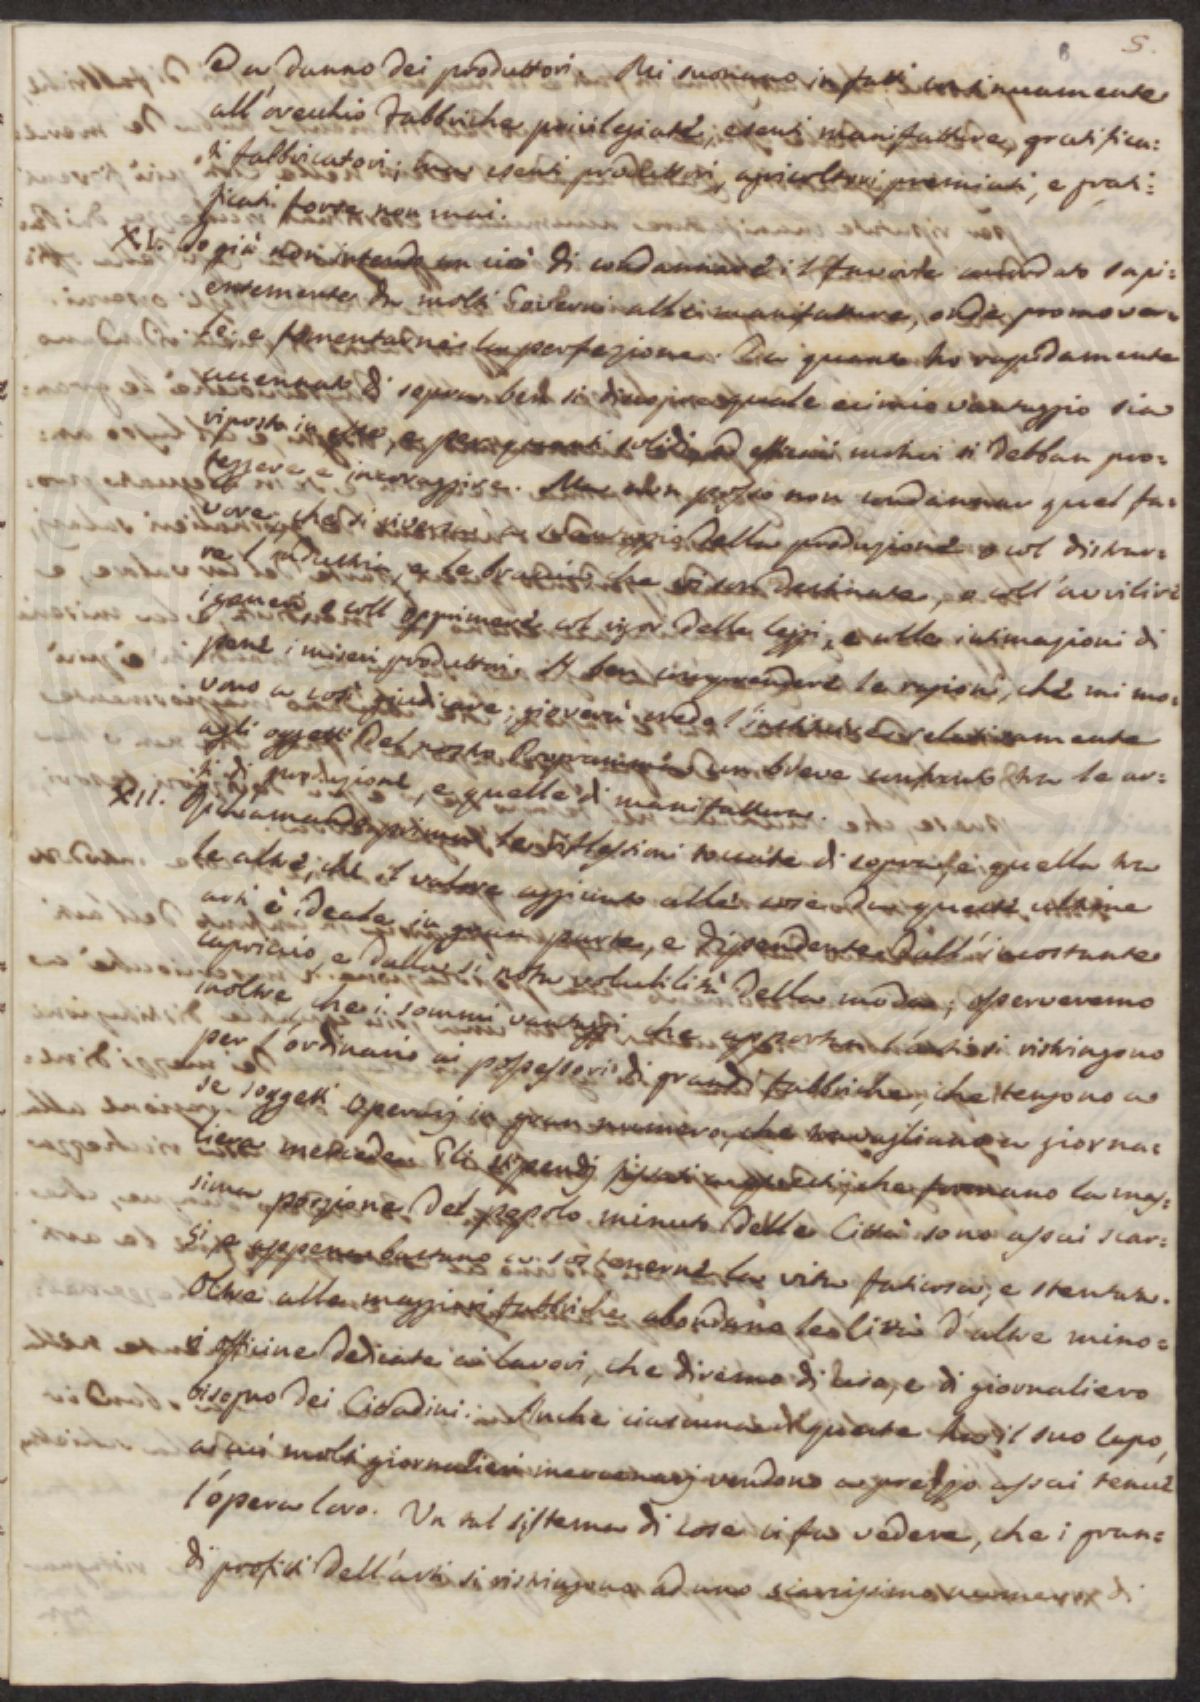 8 5.
e a danno dei produttori. Mi suonano in fatti continuamente
all'orecchio fabbriche privilegiate, esenti manifatture, gratifica:
ti fabbricatori; ma esenti produttori, agricoltori premiati, e grati:
ficati forse non mai.
XI. Io già non intendo con ciò di condannare il favore accordato sapi:
entemente da molti Governi alle manifatture, onde promover:
le, e fomentarne la perfezione. Da quanto ho rapidamente
accennato di sopra ben si discopre quale esimio vantaggio sia
riposto in esse, e per quanti solidi, ed efficaci motivi si debban pro:
teggere e incoraggire. Ma non posso non condannar quel fa:
vore che si riversa a svantaggio della produzione o col distrar:
re l'industria, e le braccia che vi son destinate, o coll'avvilire
i generi, o coll'opprimere col rigor delle leggi, e colle intimazioni di
pene i miseri produttori. A ben comprendere le ragioni, che mi mo:
vono a così giudicare, gioverà credo l'instituire relativamente
agli oggetti del nostro Programma un breve confronto tra le ar:
ti di produzione, e quelle di manifattura.
XII. Richiamando prima le riflessioni toccate di sopra, e quella tra
le altre, che il valore aggiunto alle cose da queste ultime
arti è ideale in gran parte, e dipendente dall'incostante
capriccio, e dalla sì nota volubilità della moda; osserveremo
inoltre, che i sommi vantaggi che apportan l'arti si ristringono
per l'ordinario ai possessori di grandi fabbriche, che tengono a
se soggetti operaj in gran numero, che travagliano a giorna:
liera mercede. Gli stipendj fissati a questi, che formano la mas:
sima porzione del popolo minuto delle Città sono assai scar:
si e appena bastano a sostenerne la vita faticosa, e stentata.
Oltre alle maggiori fabbriche abondano le Città d'altre mino:
ri officine dedicate ai lavori, che diremo di lusso, e di giornaliero
bisogno dei Cittadini. Anche ciascuna di queste ha il suo Capo,
a cui molti giornalieri mercenarj vendono a prezzo assai tenue
l'opera loro. Un tal sistema di cose ci fa vedere, che i gran:
di profitti dell'arti si ristringono ad uno scarsissimo numero di